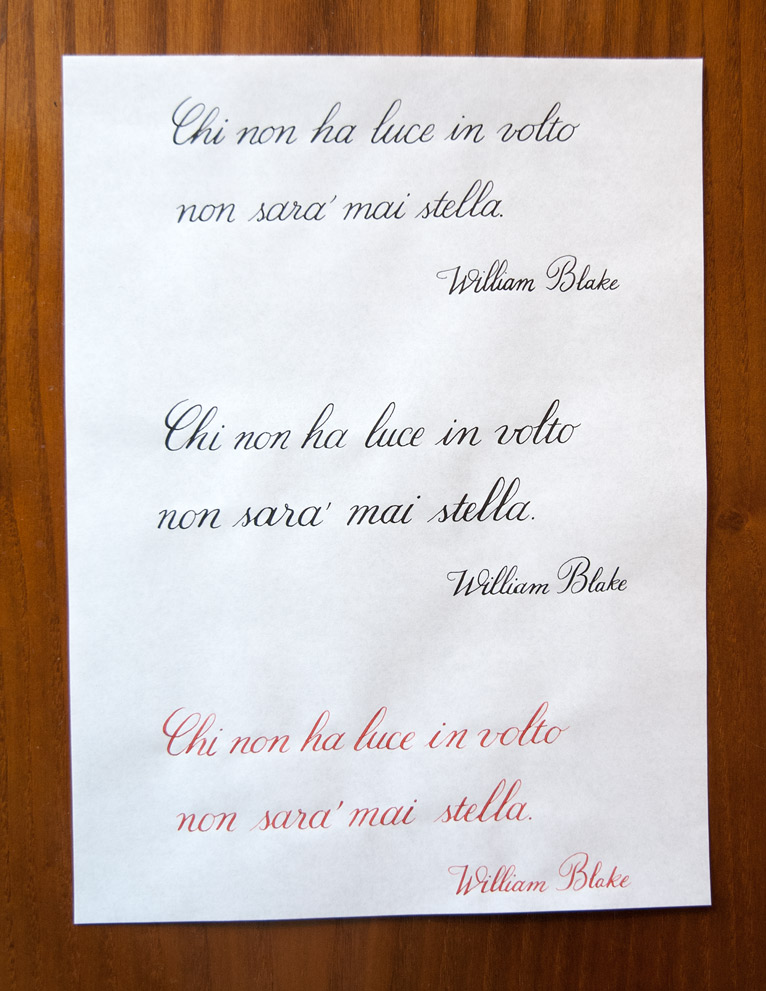 Chi non ha luce in volto
non sara' mai stella.
William Blake
Chi non ha luce in volto
non sara' mai stella.
William Blake
Chi non ha luce in volto
non sara' mai stella.
William Blake